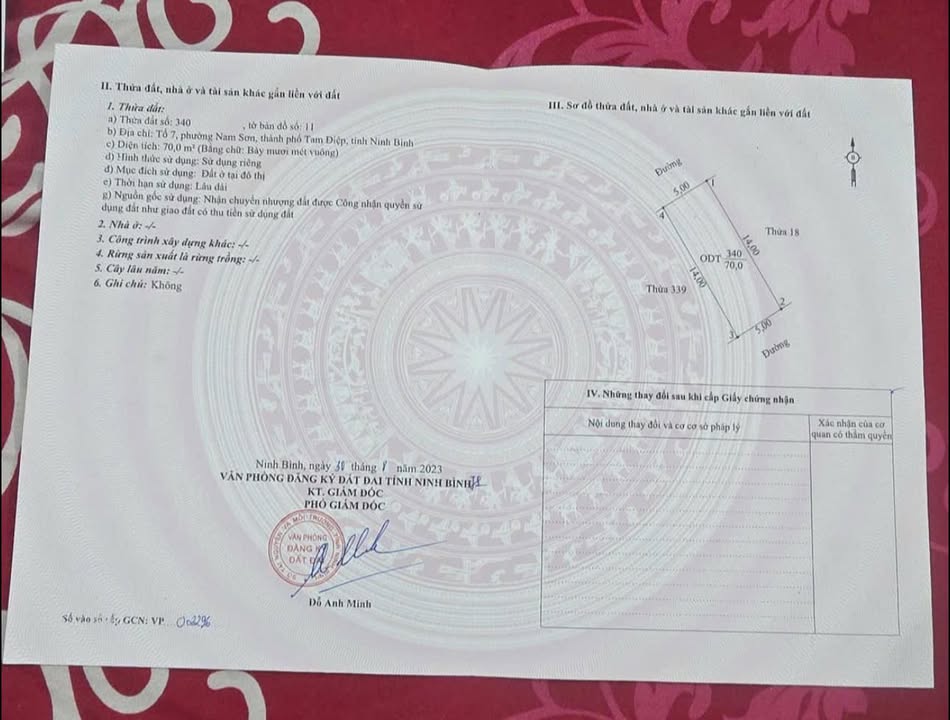 II. Thửa đất, nhà ở và tài sản khác gắn liền với đất
1. Thửa đất:
a) Thửa đất số: 340 , tờ bản đồ số: 11
b) Địa chỉ: Tổ 7, phường Nam Sơn, thành phố Tam Điệp, tỉnh Ninh Bình
c) Diện tích: 70,0 m² (Bằng chữ: Bảy mươi mét vuông)
d) Hình thức sử dụng: Sử dụng riêng
đ) Mục đích sử dụng: Đất ở tại đô thị
e) Thời hạn sử dụng: Lâu dài
g) Nguồn gốc sử dụng: Nhận chuyển nhượng đất được Công nhận quyền sử
dụng đất như giao đất có thu tiền sử dụng đất
2. Nhà ở: -/-
3. Công trình xây dựng khác: -/-
4. Rừng sản xuất là rừng trồng: -/-
5. Cây lâu năm: -/-
6. Ghi chú: Không
Ninh Bình, ngày 30 tháng 8 năm 2023
VĂN PHÒNG ĐĂNG KÝ ĐẤT ĐAI TỈNH NINH BÌNH
KT. GIÁM ĐỐC
PHÓ GIÁM ĐỐC
VĂN PHÒNG
ĐĂNG KÝ
ĐẤT ĐAI
Đỗ Anh Minh
Số vào sổ cấp GCN: VP 002296
III. Sơ đồ thửa đất, nhà ở và tài sản khác gắn liền với đất
Đường
5,00
1
4
Thửa 18
14,00
ODT 340
70,0
14,00
Thửa 339
2
3
5,00
Đường
IV. Những thay đổi sau khi cấp Giấy chứng nhận
Nội dung thay đổi và cơ sở pháp lý
Xác nhận của cơ
quan có thẩm quyền